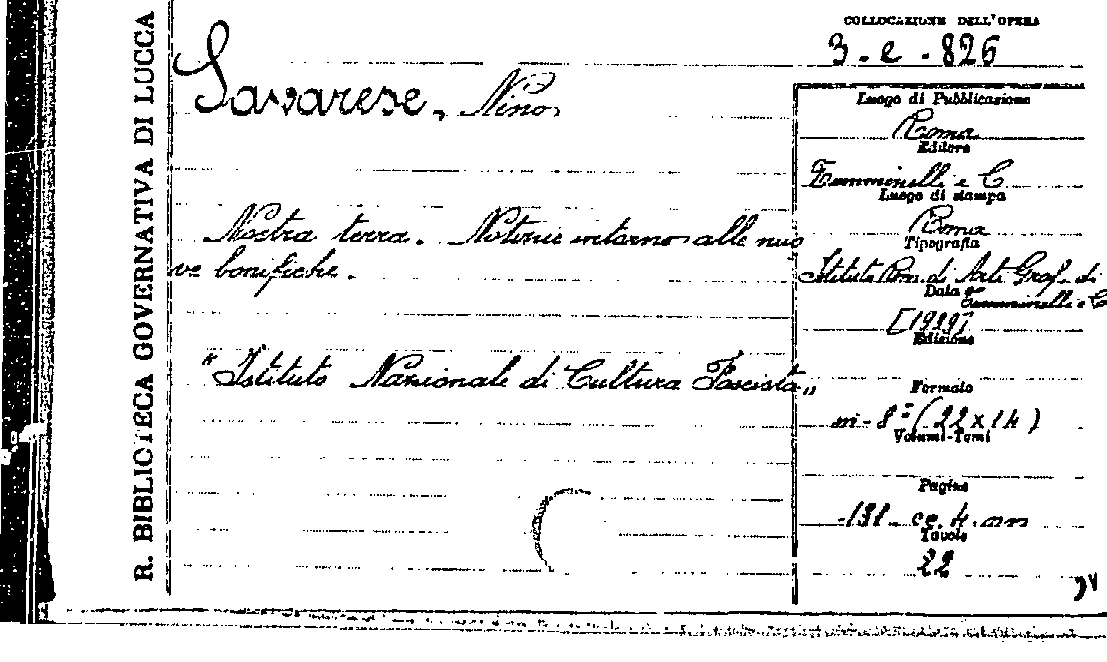 R. BIBLIOTECA GOVERNATIVA DI LUCCA
COLLOCAZIONE DELL'OPERA
3-e-826
Savarese, Nino
Nostra terra. Notizie intorno alle nuo
ve bonifiche.
"Istituto Nazionale di Cultura Fascista„
Luogo di Pubblicazione
Roma
Editore
Tumminelli e C
Luogo di stampa
Roma
Tipografia
Istituto Rom. di Arti Graf. di
Data
Tumminelli e C
Edizione
Formato
in-8º (22x14)
Volumi-Tomi
Pagine
-131- ce. 4. nn
Tavole
22